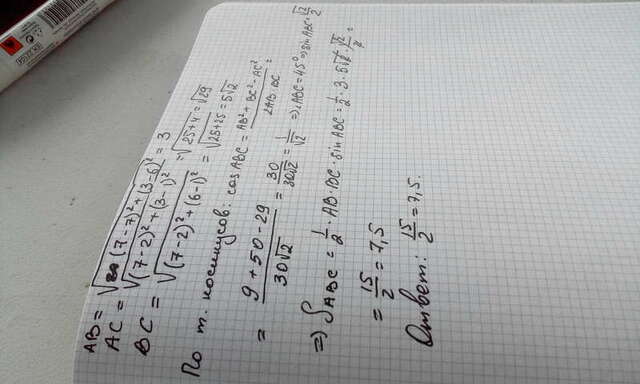 AB = √(7-7)² + (3-6)² = 3
AC = √(7-2)² + (3-1)² = √25+4 = √29
BC = √(7-2)² + (6-1)² = √25+25 = 5√2
По т. косинусов: cos ABC = AB² + BC² - AC² / 2AB·BC =
= 9 + 50 - 29 / 30√2 = 30 / 30√2 = 1/√2 ⇒ ∠ABC = 45° ⇒ sin ABC = √2/2
⇒ S ABC = 1/2 · AB · BC · sin ABC = 1/2 · 3 · 5√2 · √2/2 =
= 15/2 = 7,5
Ответ: 15/2 = 7,5.